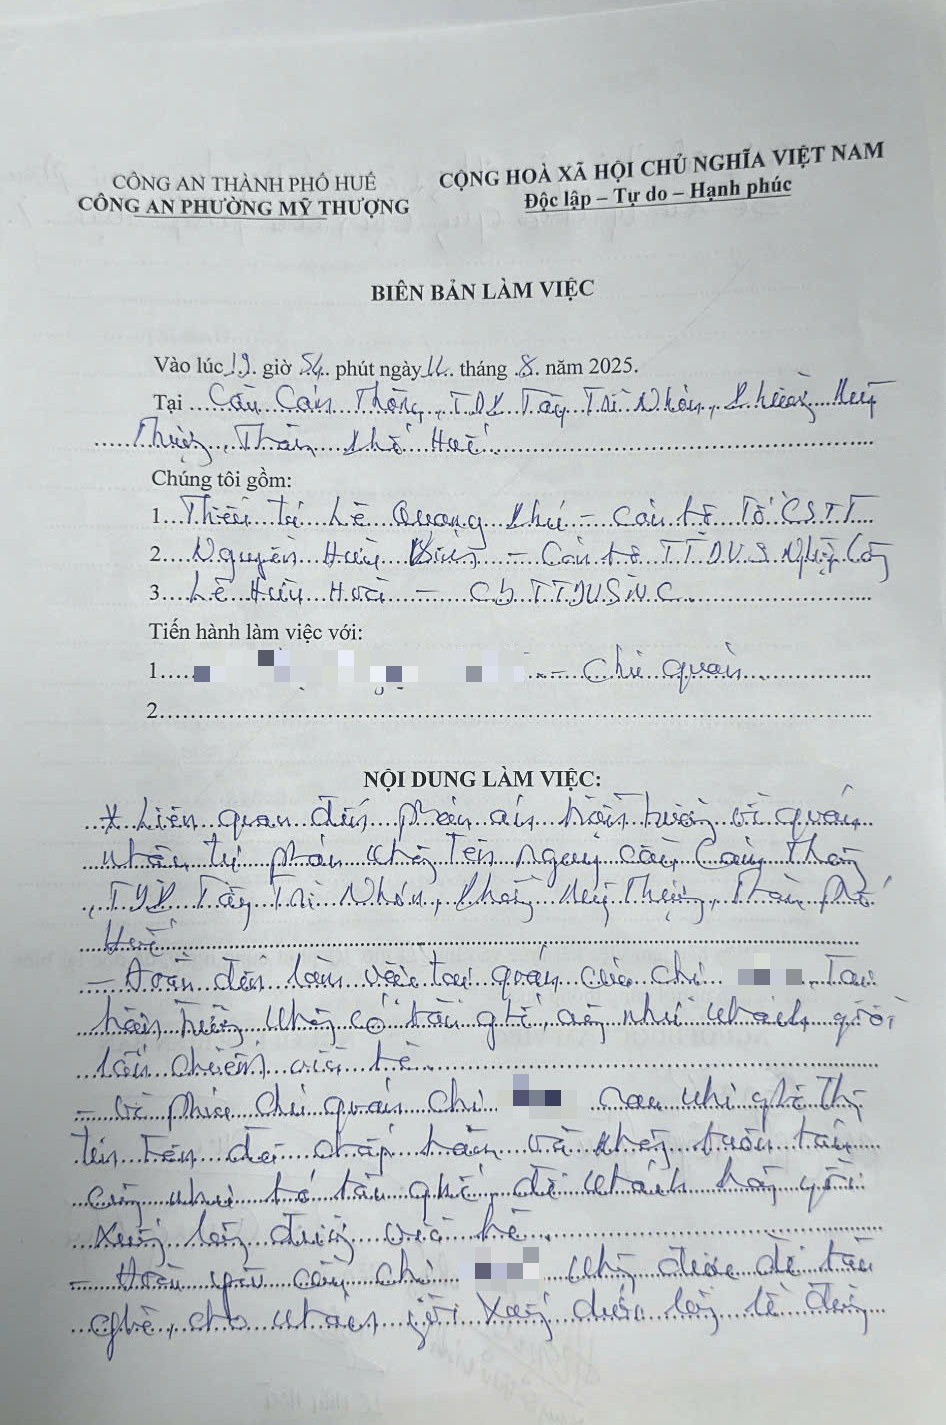 CÔNG AN THÀNH PHỐ HUẾ
CÔNG AN PHƯỜNG MỸ THƯỢNG
CỘNG HOÀ XÃ HỘI CHỦ NGHĨA VIỆT NAM
Độc lập – Tự do – Hạnh phúc
BIÊN BẢN LÀM VIỆC
Vào lúc 19 giờ 54 phút ngày tháng 8 năm 2025.
Tại Cầu Thông, TDP Tây Trì Nhơn, Phường Mỹ
Thượng, Thành Phố Huế
Chúng tôi gồm:
1. Thiếu tá Lê Quang Phú – Cán bộ Tổ CSTT
2. Nguyễn Hữu – Cán bộ TTDVSNCông
3. Lê Hữu Hoài – CB TTDVSNC
Tiến hành làm việc với:
1. – Chủ quán
2.
NỘI DUNG LÀM VIỆC:
* Liên quan đến phản ánh hiện trường về quán
nhậu tự phát không tên ngay cầu
, TDP Tây Trì Nhơn, Phường Mỹ Thượng, Thành phố
Huế
– Đoàn đến làm việc tại quán của chị , Tại
hiện trường không có bàn ghế, cũng như khách ngồi
lấn chiếm vỉa hè.
– Về phía chủ quán chị sau khi ghi
tin trên đã chấp hành và không buôn bán
cũng như bố trí bàn ghế, để khách hàng ngồi
xuống lòng đường vỉa hè
– Đoàn yêu cầu chị không được để bàn
ghế, cho khách ngồi xuống dưới lòng lề đường